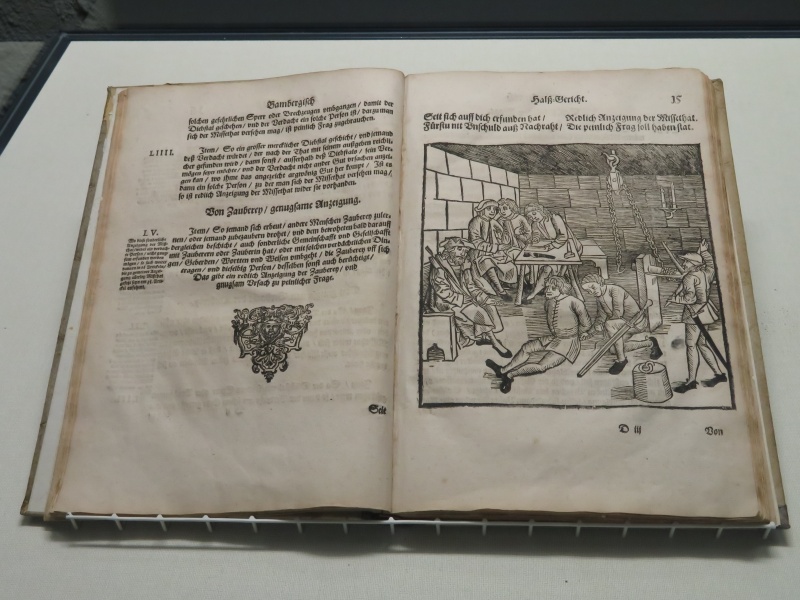 Bambergisch
solchen gefehrlichen Sperr oder Brechzeugen umbgangen / damit der
Diebstal geschehen / und der Verdacht ein solche Person ist / darzu man
sich der Missethat versehen mag / ist peinlich Frag zugebrauchen.
LIIII. Item / So ein grosser mercklicher Diebstal geschicht / und jemand
deß Verdacht würde / der nach der That mit seinem außgeben reichli-
cher gefunden wird / dann sonst / ausserhalb deß Diebstals / sein Ver-
mögen seyn möchte / und der Verdacht nicht ander Gut ursachen anzei-
gen kan / wo ihme das angezeicht argwönig Gut her kompt / Ist es
dann ein solche Person / zu der man sich der Missethat versehen mag /
so ist redlich Anzeigung der Missethat wider sie vorhanden.
Von Zauberey / genugsame Anzeigung.
LV. Item / So jemand sich erbeut / andere Menschen Zauberey zuler-
nen / oder jemand zubezaubern drohet / und dem betroheten bald darauff
dergleichen beschicht / auch sonderliche Gemeinschafft und Gesellschafft
mit Zauberern oder Zauberin hat / oder mit solchen verdächtlichen Din-
gen / Geberden / Worten und Weisen umbgeht / die Zauberey uff sich
tragen / und dieselbig Person / desselben sonst auch berüchtiget /
Das gibt ein redlich Anzeigung der Zauberey / und
gnugsam Ursach zu peinlicher Frage.
Seit
Halß-Gericht. 35
Seit sich auff dich erfunden hat / Redlich Anzeigung der Missethat.
Fürstu nit Unschuld auß Nachraht / Die peinlich Frag soll haben stat.
D iij Von